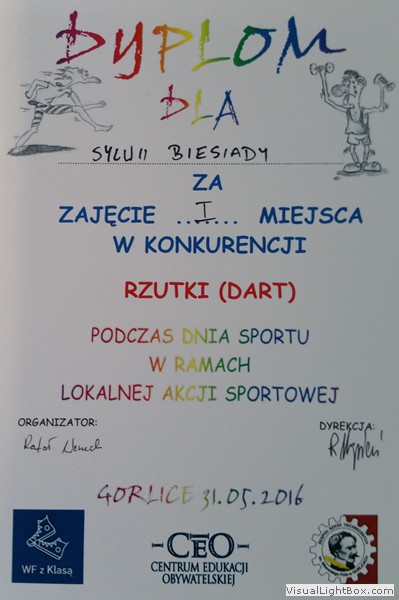 DYPLOM
DLA
SYLWII BIESIADY
ZA
ZAJĘCIE ...I... MIEJSCA
W KONKURENCJI
RZUTKI (DART)
PODCZAS DNIA SPORTU
W RAMACH
LOKALNEJ AKCJI SPORTOWEJ
ORGANIZATOR:
DYREKCJA:
Rafał
GORLICE 31.05.2016
WF z Klasą
CEO
CENTRUM EDUKACJI
OBYWATELSKIEJ
VisualLightBox.com